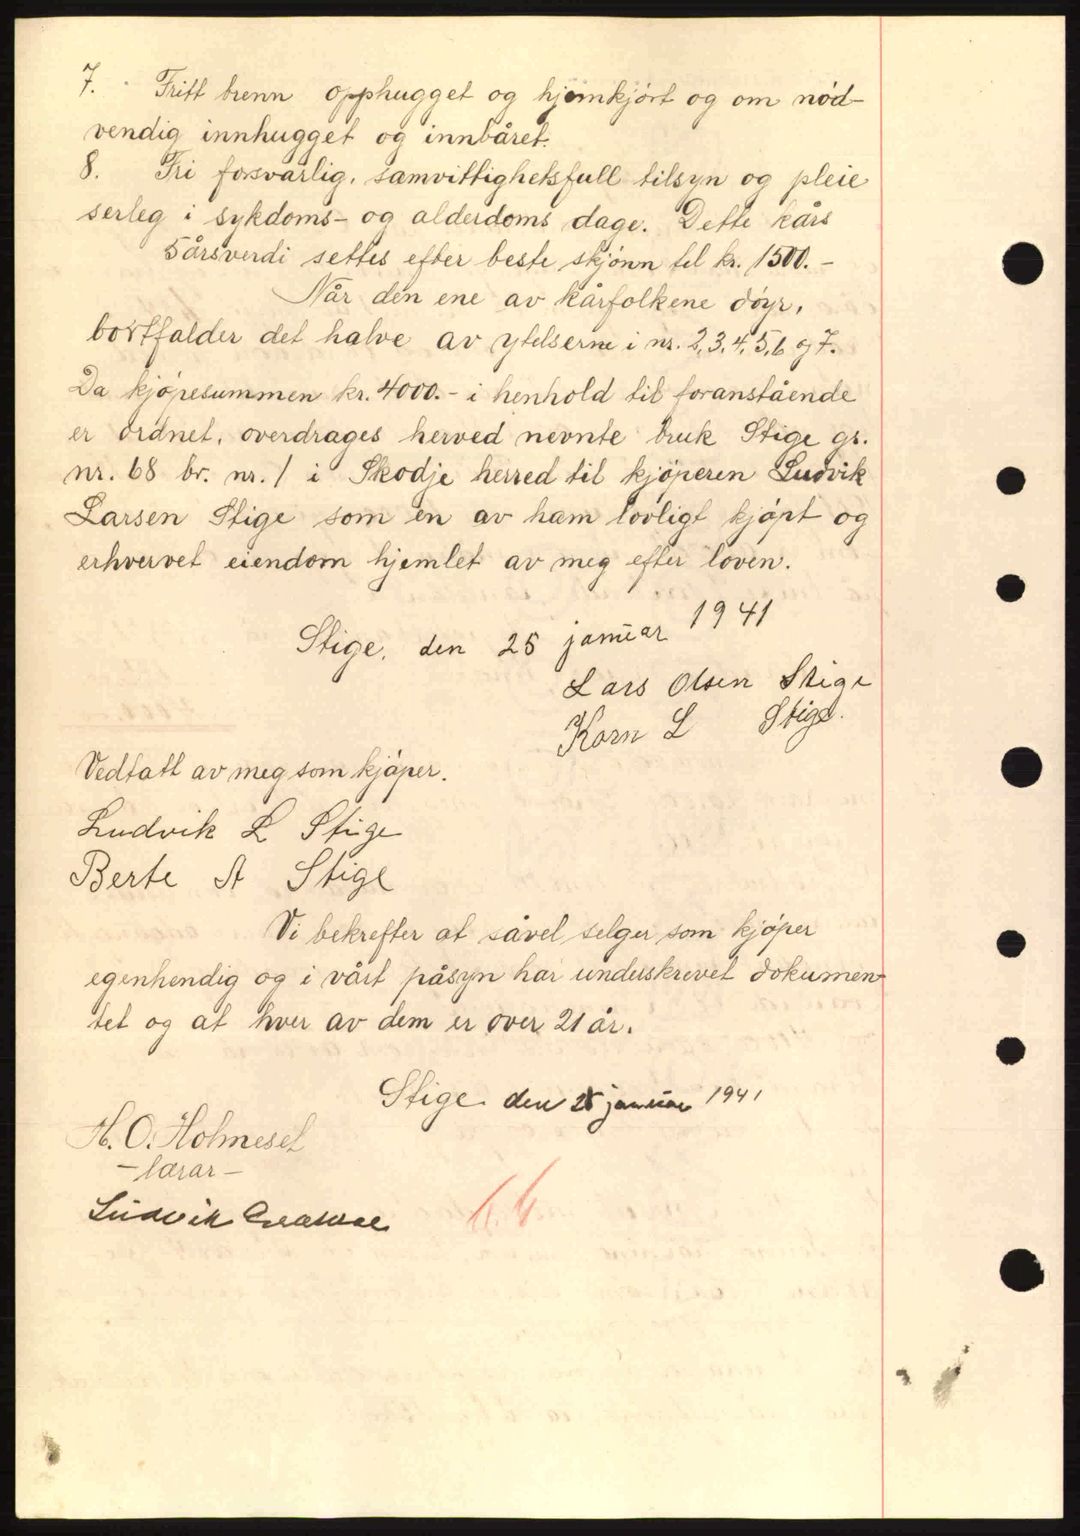 7. Fritt brenn opphugget og hjemkjórt og om nód-
vendig innhugget og innbåret.
8. Fri forsvarlig, samvittighetsfull tilsyn og pleie
serleg i sykdoms- og alderdoms dage. Dette kårs
5årsverdi settes efter beste skjónn til kr. 1500.-
Når den ene av kårfolkene dóyr,
bortfalder det halve av ytelserne i nr. 2, 3, 4, 5, 6 og 7.
Da kjópesummen kr. 4000.- i henhold til foranstående
er ordnet, overdrages herved nevnte bruk Stige gr.
nr. 68 br. nr. 1 i Skodje herred til kjóperen Ludvik
Larsen Stige som en av ham lovligt kjópt og
erhvervet eiendom hjemlet av meg efter loven.
Stige, den 25 januar 1941
Lars Olsen Stige
Karn L Stige.
Vedtatt av meg som kjóper.
Ludvik L Stige
Berte A Stige
Vi bekrefter at såvel selger som kjóper
egenhendig og i vårt påsyn har underskrevet dokumen-
tet og at hver av dem er over 21 år.
Stige den 25 januar 1941
H. O. Holmeset
- lærar -
Ludvik